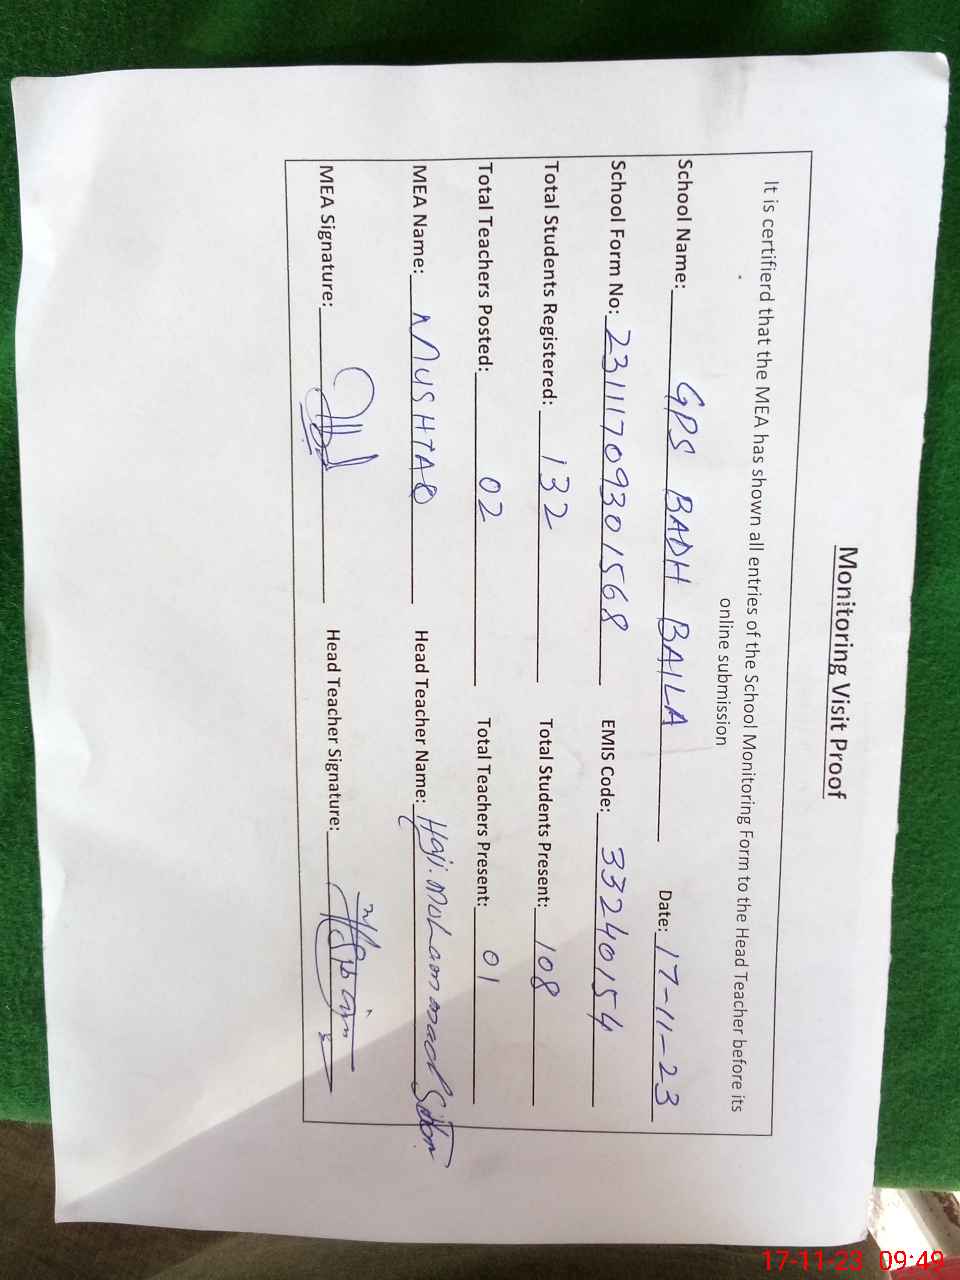 Monitoring Visit Proof
It is certifierd that the MEA has shown all entries of the School Monitoring Form to the Head Teacher before its
online submission
School Name: GPS BADH BAILA Date: 17-11-23
School Form No: 23111709301568 EMIS Code: 33240154
Total Students Registered: 132 Total Students Present: 108
Total Teachers Posted: 02 Total Teachers Present: 01
MEA Name: MUSHTAQ Head Teacher Name: Haji. Mohammad
MEA Signature: Head Teacher Signature:
17-11-23 09:49